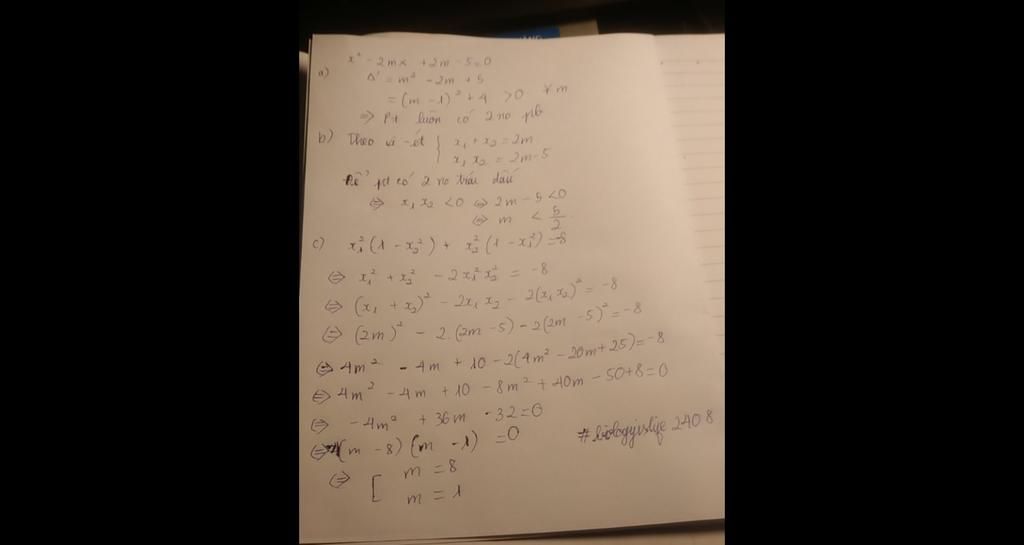 x² - 2mx + 2m - 5 = 0
a) Δ' = m² - 2m + 5
= (m - 1)² + 4 > 0 ∀m
=> Pt luôn có 2 no pb
b) Theo vi-ét { x₁ + x₂ = 2m
x₁ x₂ = 2m - 5
Để pt có 2 no trái dấu
<=> x₁ x₂ < 0 <=> 2m - 5 < 0
<=> m < 5/2
c) x₁² (1 - x₂²) + x₂² (1 - x₁²) = -8
<=> x₁² + x₂² - 2x₁² x₂² = -8
<=> (x₁ + x₂)² - 2x₁ x₂ - 2(x₁ x₂)² = -8
<=> (2m)² - 2.(2m - 5) - 2(2m - 5)² = -8
<=> 4m² - 4m + 10 - 2(4m² - 20m + 25) = -8
<=> 4m² - 4m + 10 - 8m² + 40m - 50 + 8 = 0
<=> -4m² + 36m - 32 = 0
<=> (m - 8) (m - 1) = 0
#biologyislife2408
<=> [ m = 8
m = 1